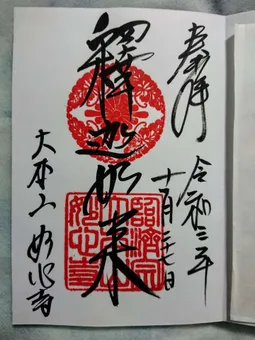 奉拝
令和三年
十一月二十七日
釋迦如来
大本山 妙心寺